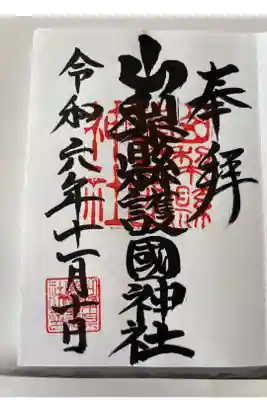 奉拝
山梨縣護國神社
令和六年十一月十日